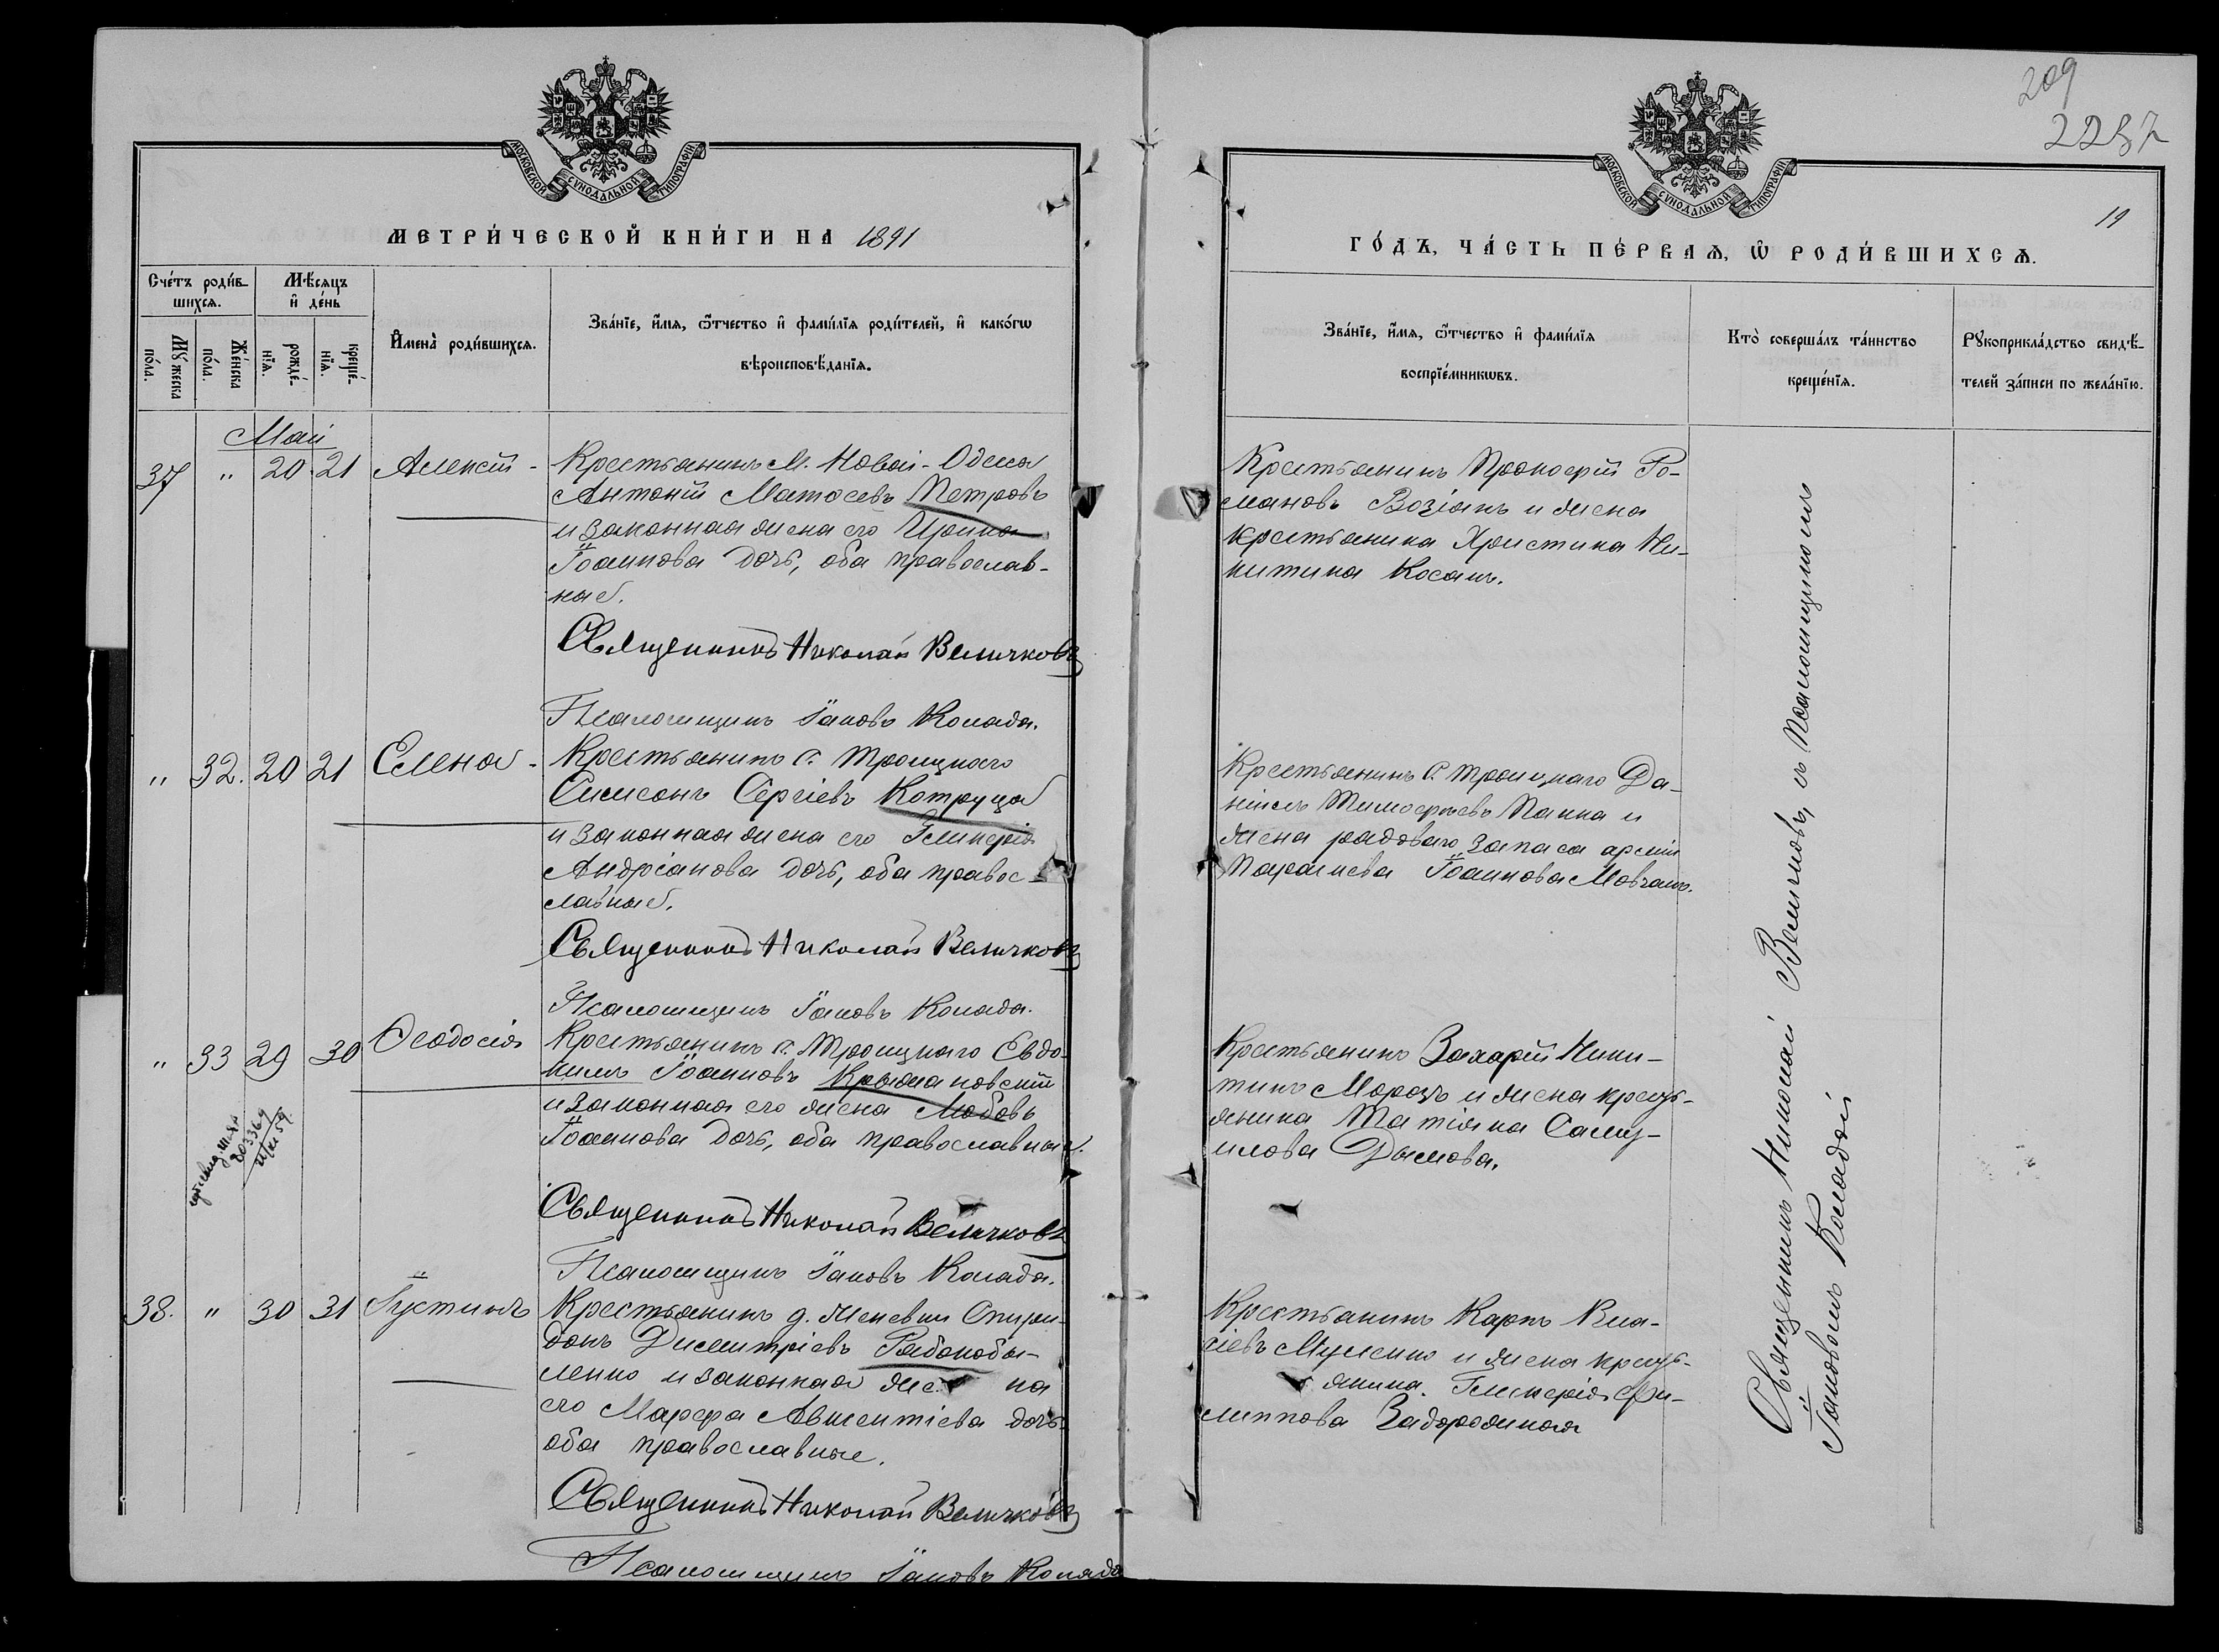 МОСКОВСКОЙ СѴНОДАЛЬНОЙ ТИПОГРАФІИ
МЕТРИ́ЧЕСКОЙ КНИ́ГИ НА 1891
Сче́тъ роди́в-
шихся.
Мѣ́сяцъ
и де́нь
Мꙋ́жеска
по́ла.
Же́нска
по́ла.
рожде́-
нїя.
креще́-
нїя.
Имена̀ роди́вшихся.
Зва́нїе, и́мя, ѻ҆́тчество и҆ фами́лїя роди́телей, и҆ како́гѡ
вѣроисповѣ́данїя.
Май
37 " 20 21 Алексій - Крестьянинъ М. Новой-Одессы
Антоній Матѳеевъ Петровъ
и законная жена его Ирина
Іоаннова дочь, оба православ-
ные.
Священникъ Николай Величковъ
Псаломщикъ Іаковъ Коляда.
" 32. 20 21 Елена - Крестьянинъ с. Троицкаго
Симеонъ Сергіевъ Котруца
и законная жена его Гликерія
Андріанова дочь, оба правос-
лавные.
Священникъ Николай Величковъ
Псаломщикъ Іаковъ Коляда.
" 33 29 30 Ѳеодосія Крестьянинъ с. Троицкаго Евдо-
кимъ Іоанновъ Крыжановскій
и законная его жена Любовь
Іоаннова дочь, оба православные.
Священникъ Николай Величковъ
Псаломщикъ Іаковъ Коляда.
38. " 30 31 Іустинъ Крестьянинъ д. Спири-
донъ Димитріевъ Рабокобы-
ленко и законная жена
его Марфа Авксентіева дочь
оба православные.
Священникъ Николай Величковъ
Псаломщикъ Іаковъ Коляда
209
2237
19
МОСКОВСКОЙ СѴНОДАЛЬНОЙ ТИПОГРАФІИ
ГО́ДЪ, ЧА́СТЬ ПЕ́РВАЯ, Ѡ҆ РОДИ́ВШИХСЯ.
Зва́нїе, и́мя, ѻ҆́тчество и҆ фами́лїя
воспрїе́мникѡвъ.
Кто̀ соверша́лъ та́инство
креще́нїя.
Рꙋкоприкла́дство свидѣ́-
телей за́писи по жела́нїю.
Крестьянинъ Прокофій Ро-
мановъ Возіанъ и жена
крестьянина Христина Ни-
китина Косанъ.
Крестьянинъ с. Троицкаго Да-
ніилъ Тимофеевъ Папка и
жена рядового запаса арміи
Параскева Іоаннова Мовчанъ.
Крестьянинъ Захарій Ники-
тинъ Морозъ и жена кресть-
янина Татіана Саму-
илова Дымова.
Крестьянинъ Карпъ Вла-
сіевъ и жена кресть-
янина Гликерія Фи-
липпова Задорожная
Священникъ Николай Величковъ, съ Псаломщикомъ
Іаковомъ Колядой